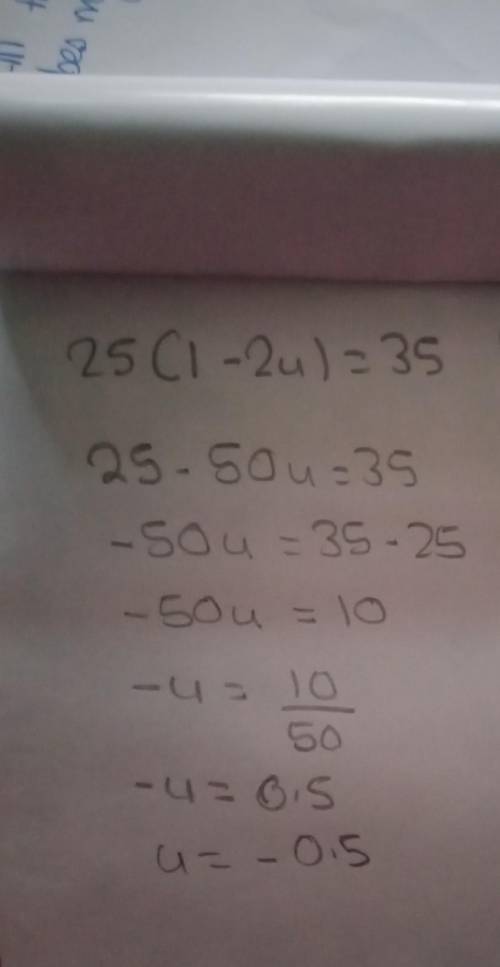 25(1-2u)=35
25-50u=35
-50u=35-25
-50u=10
-u=10/50
-u=0.5
u=-0.5